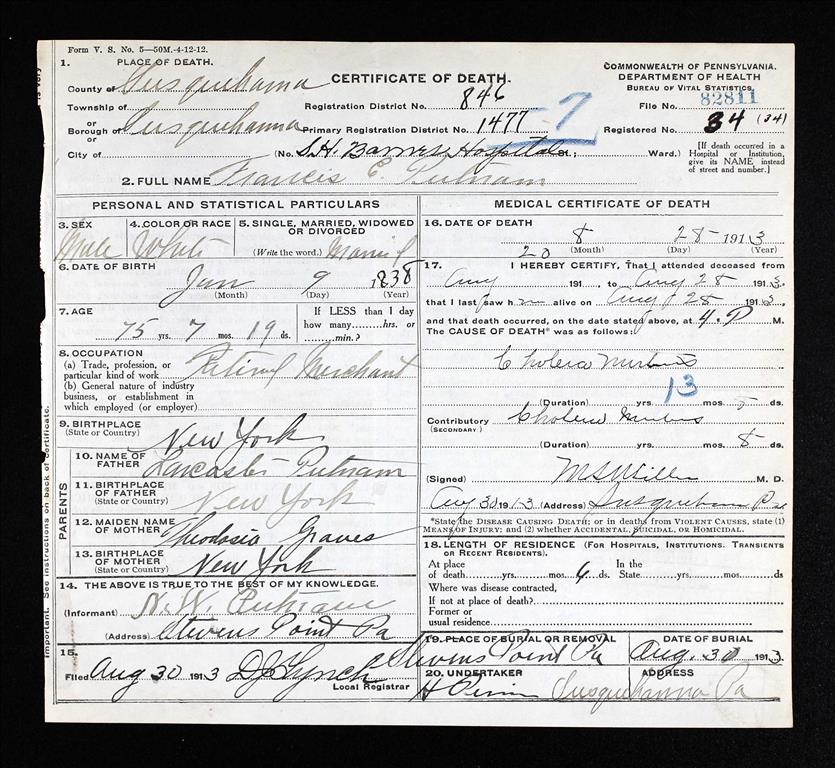 Form V. S. No. 5—50M.-4-12-12.
1. PLACE OF DEATH.
County of Susquehanna
Township of
or
Borough of Susquehanna
City of
CERTIFICATE OF DEATH.
Registration District No. 846
Primary Registration District No. 1477 -7
(No. S.H. Barnes Hospital St.; Ward.)
COMMONWEALTH OF PENNSYLVANIA.
DEPARTMENT OF HEALTH
BUREAU OF VITAL STATISTICS.
File No. 82811
Registered No. 34 (34)
[If death occurred in a Hospital or Institution, give its NAME instead of street and number.]
2. FULL NAME Francis E. Putnam
PERSONAL AND STATISTICAL PARTICULARS
3. SEX Male
4. COLOR OR RACE White
5. SINGLE, MARRIED, WIDOWED OR DIVORCED
(Write the word.) Married
6. DATE OF BIRTH
Jan 9 1838
(Month) (Day) (Year)
7. AGE
75 yrs. 7 mos. 19 ds.
If LESS than 1 day
how many........hrs. or
........min.?
8. OCCUPATION
(a) Trade, profession, or
particular kind of work Retired Merchant
(b) General nature of industry
business, or establishment in
which employed (or employer)
9. BIRTHPLACE
(State or Country) New York
PARENTS
10. NAME OF
FATHER Lancaster Putnam
11. BIRTHPLACE
OF FATHER
(State or Country) New York
12. MAIDEN NAME
OF MOTHER Theodosia Graves
13. BIRTHPLACE
OF MOTHER
(State or Country) New York
14. THE ABOVE IS TRUE TO THE BEST OF MY KNOWLEDGE.
(Informant) N. W. Putnam
(Address) Stevens Point Pa
15.
Filed Aug 30 1913 D J Lynch
Local Registrar
MEDICAL CERTIFICATE OF DEATH
16. DATE OF DEATH
8 28 1913
(Month) (Day) (Year)
17. I HEREBY CERTIFY, That I attended deceased from
Aug 20 191 , to Aug 28 1913
that I last saw him alive on Aug 28 1913
and that death occurred, on the date stated above, at 4 P M.
The CAUSE OF DEATH* was as follows:
Cholera Morbus
13
(Duration) yrs. mos. ds.
Contributory Cholera
(SECONDARY)
(Duration) yrs. mos. 8 ds.
(Signed) M. D.
Aug 30 1913 (Address) Susquehanna Pa
*State the DISEASE CAUSING DEATH; or in deaths from VIOLENT CAUSES, state (1)
MEANS OF INJURY; and (2) whether ACCIDENTAL, SUICIDAL, or HOMICIDAL.
18. LENGTH OF RESIDENCE (FOR HOSPITALS, INSTITUTIONS, TRANSIENTS
OR RECENT RESIDENTS).
At place In the
of death yrs. mos. ds. State yrs. mos. ds
Where was disease contracted,
If not at place of death?
Former or
usual residence
19. PLACE OF BURIAL OR REMOVAL
Stevens Point Pa
DATE OF BURIAL
Aug. 30 1913
20. UNDERTAKER
ADDRESS
Susquehanna Pa
Important. See instructions on back of certificate.